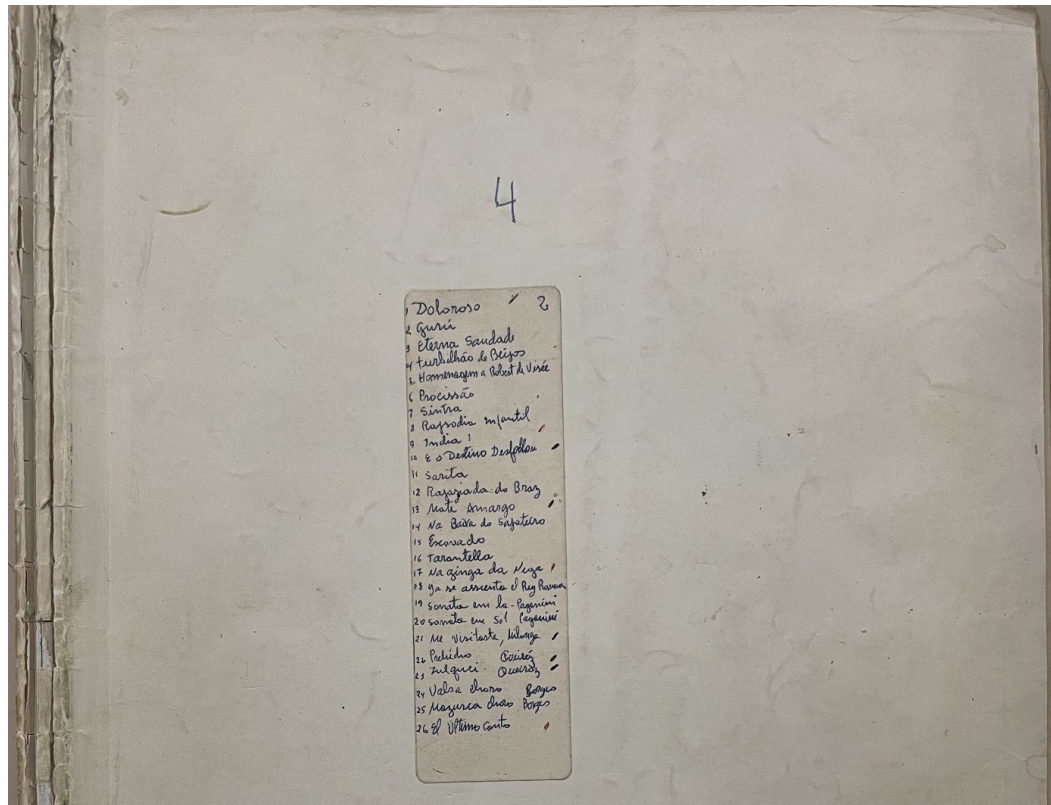 4
1 Doloroso 2
2 Guriri
3 Eterna Saudade
4 turbilhão de Beijos
5 Homenagem a Robert de Visée
6 Procissão
7 Sintra
8 Rapsodia Infantil
9 India !
10 E o Destino Desfolhou
11 Sarita
12 Rapaziada do Braz
13 Mate Amargo
14 Na Baixa do Sapateiro
15 Escovado
16 Tarantella
17 Na ginga da Nega
18 Ya se assienta el Rey
19 Sonata em la - Paganini
20 Sonata em Sol Paganini
21 Me Visitaste, Milonga
22 Preludio Queiróz
23 Queiróz
24 Valsa choro Borges
25 Mazurca choro Borges
26 El Ultimo Canto